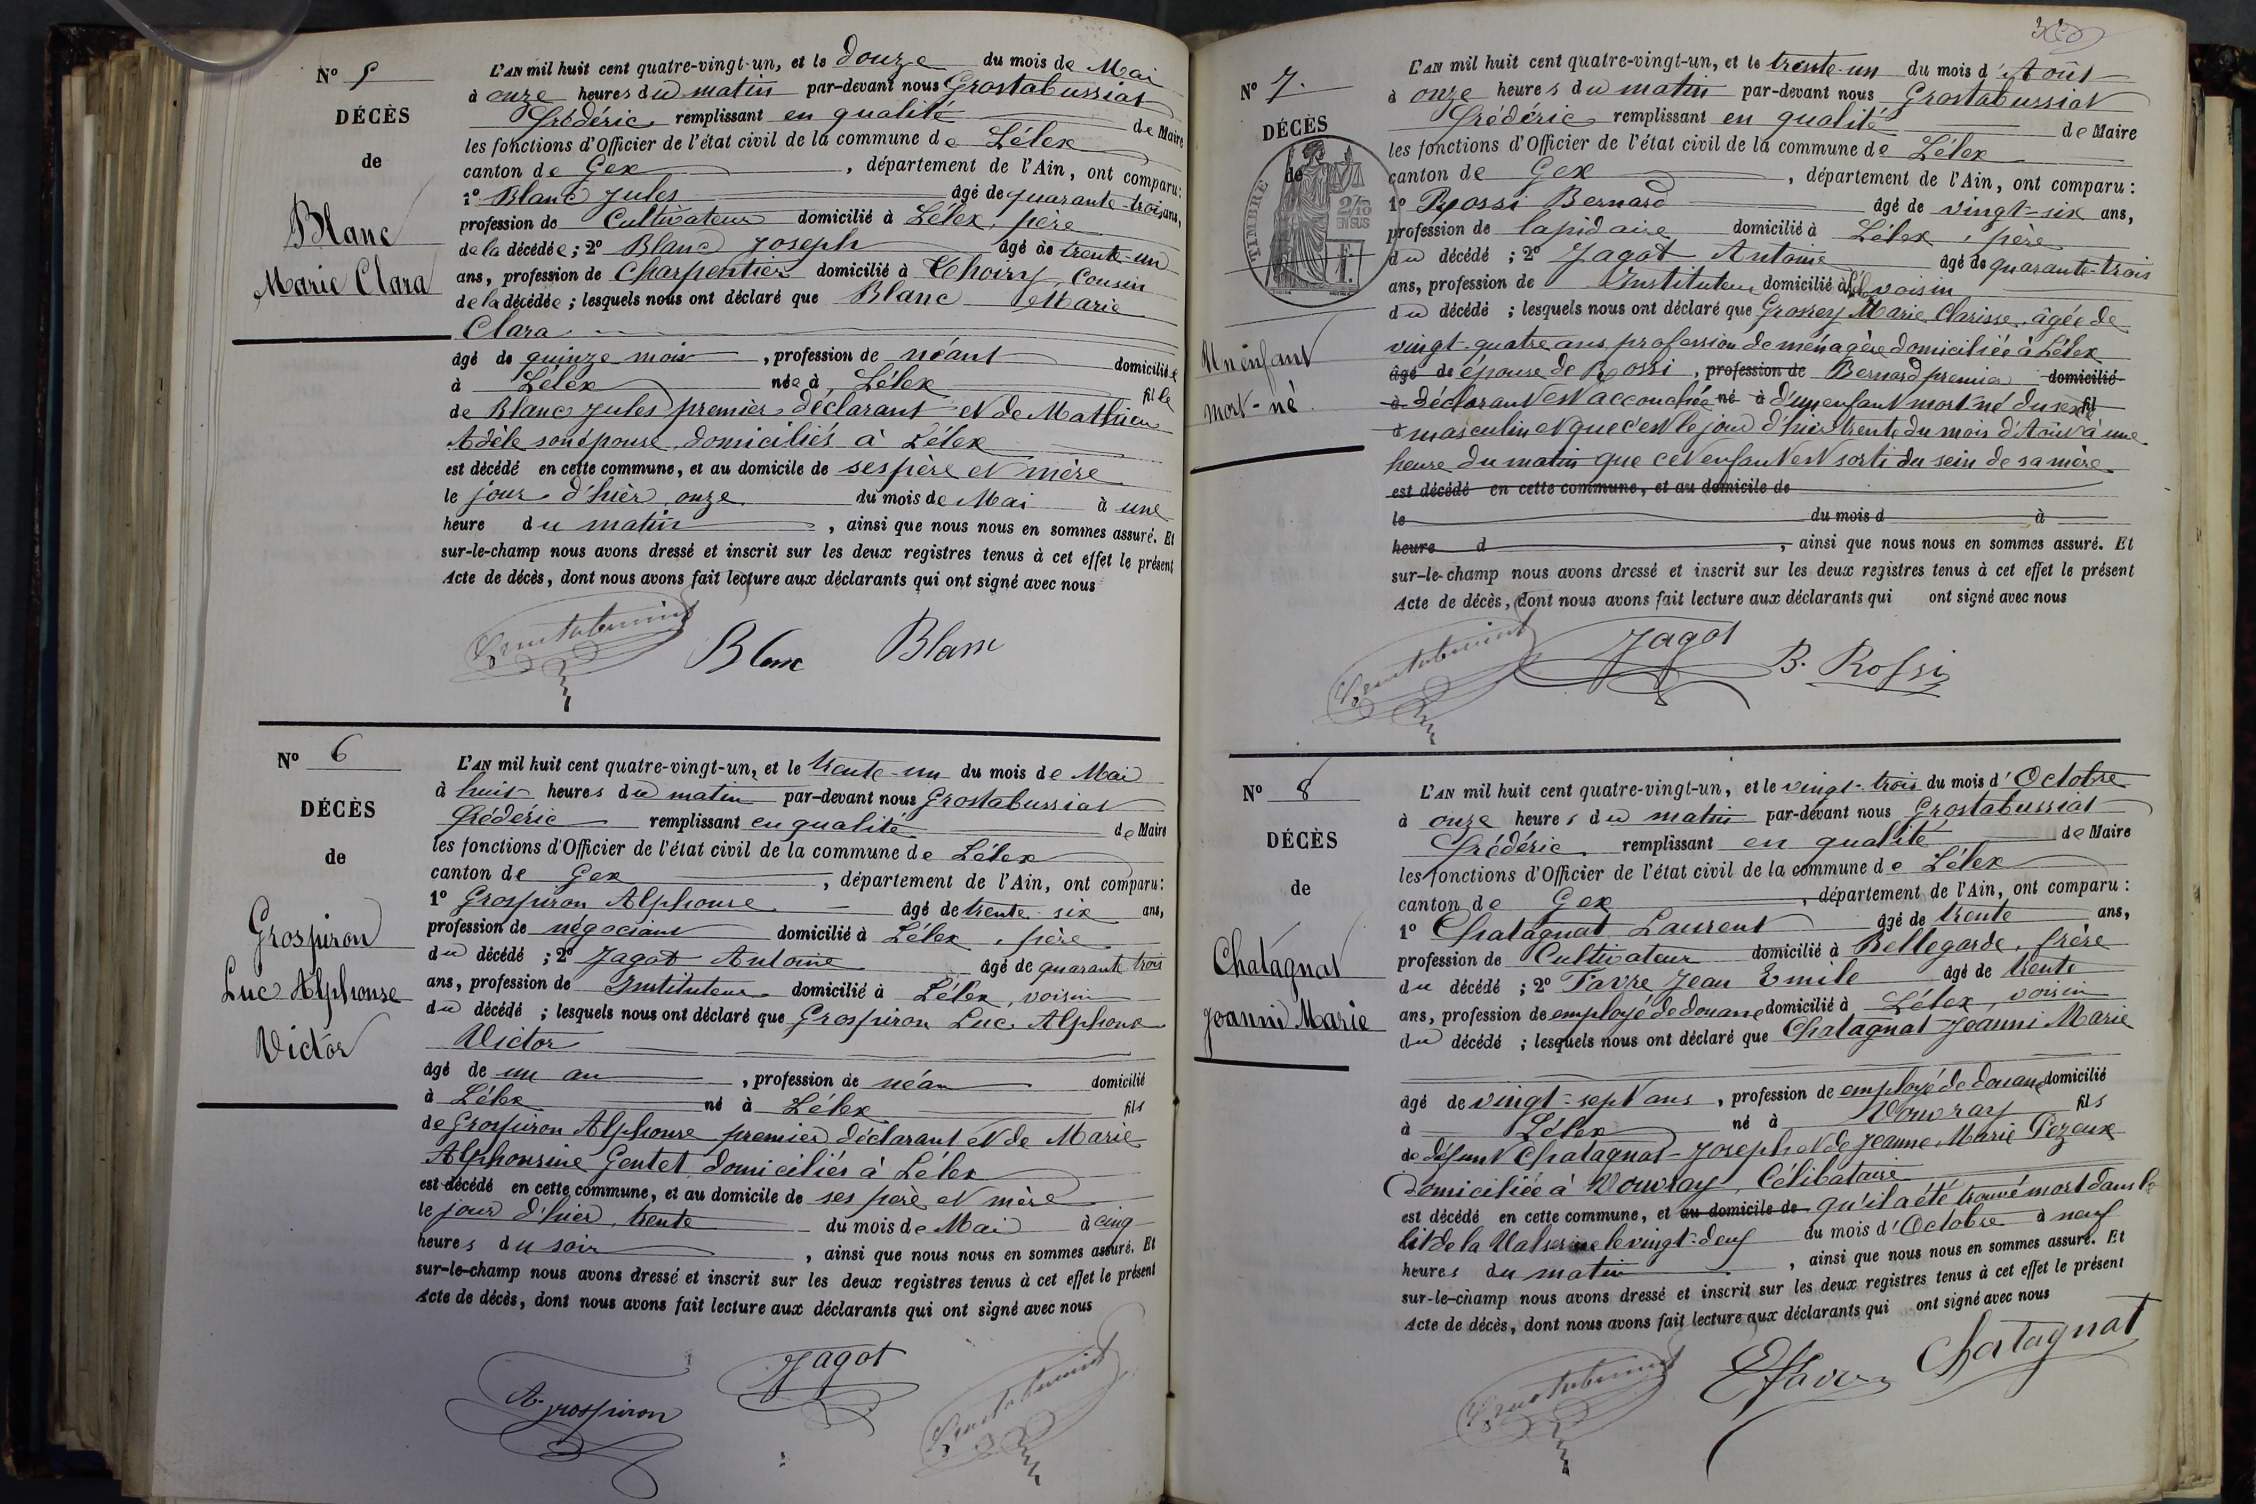 N° 5
DÉCÈS
de
Blanc
Marie Clara
L'AN mil huit cent quatre-vingt-un, et le douze du mois de Mai
à onze heures du matin par-devant nous Grostabussiat
Frédéric remplissant en qualité de Maire
les fonctions d'Officier de l'état civil de la commune de Lélex
canton de Gex, département de l'Ain, ont comparu :
1° Blanc Jules âgé de quarante-trois ans,
profession de Cultivateur domicilié à Lélex, père
de la décédée ; 2° Blanc Joseph âgé de trente-un
ans, profession de Charpentier domicilié à Thoiry, Cousin
de la décédée ; lesquels nous ont déclaré que Blanc Marie
Clara
âgé de quinze mois, profession de néant domiciliée
à Lélex née à Lélex fille
de Blanc Jules premier déclarant et de Mathieu
Adèle son épouse, domiciliés à Lélex
est décédé en cette commune, et au domicile de ses père et mère
le jour d'hièr onze du mois de Mai à une
heure du matin, ainsi que nous nous en sommes assuré. Et
sur-le-champ nous avons dressé et inscrit sur les deux registres tenus à cet effet le présent
Acte de décès, dont nous avons fait lecture aux déclarants qui ont signé avec nous
Grostabussiat Blanc Blanc
N° 6
DÉCÈS
de
Grospiron
Luc Alphonse
Victor
L'AN mil huit cent quatre-vingt-un, et le trente-un du mois de Mai
à huit heures du matin par-devant nous Grostabussiat
Frédéric remplissant en qualité de Maire
les fonctions d'Officier de l'état civil de la commune de Lélex
canton de Gex, département de l'Ain, ont comparu :
1° Grospiron Alphonse âgé de trente-six ans,
profession de négociant domicilié à Lélex, père
du décédé ; 2° Jagot Antoine âgé de quarante trois
ans, profession de Instituteur domicilié à Lélex, voisin
du décédé ; lesquels nous ont déclaré que Grospiron Luc Alphonse
Victor
âgé de un an, profession de néant domicilié
à Lélex né à Lélex fils
de Grospiron Alphonse premier déclarant et de Marie
Alphonsine Gentet domiciliés à Lélex
est décédé en cette commune, et au domicile de ses père et mère
le jour d'hier, trente du mois de Mai à cinq
heures du soir, ainsi que nous nous en sommes assuré. Et
sur-le-champ nous avons dressé et inscrit sur les deux registres tenus à cet effet le présent
Acte de décès, dont nous avons fait lecture aux déclarants qui ont signé avec nous
A. Grospiron Jagot Grostabussiat
N° 7.
DÉCÈS
de
TIMBRE
2/10
EN SUS
F.
Un enfant
mort-né.
L'AN mil huit cent quatre-vingt-un, et le trente-un du mois d'Août
à onze heures du matin par-devant nous Grostabussiat
Frédéric remplissant en qualité de Maire
les fonctions d'Officier de l'état civil de la commune de Lélex
canton de Gex, département de l'Ain, ont comparu :
1° Rossi Bernard âgé de vingt-six ans,
profession de lapidaire domicilié à Lélex, père
du décédé ; 2° Jagot Antoine âgé de quarante-trois
ans, profession de Instituteur domicilié à Lélex voisin
du décédé ; lesquels nous ont déclaré que Grosrey Marie Clarisse, âgée de
vingt-quatre ans profession de ménagère domiciliée à Lélex
âgé de épouse de Rossi, profession de Bernard premier domicilié
à déclarant est accouchée né à d'un enfant mort né du sexe fil
d masculin et que c'est le jour d'hier trente du mois d'Août à une
heure du matin que cet enfant est sorti du sein de sa mère
est décédé en cette commune, et au domicile de
le du mois d à
heure d, ainsi que nous nous en sommes assuré. Et
sur-le-champ nous avons dressé et inscrit sur les deux registres tenus à cet effet le présent
Acte de décès, dont nous avons fait lecture aux déclarants qui ont signé avec nous
Grostabussiat Jagot B. Rossi
N° 8
DÉCÈS
de
Chatagnat
Joanni Marie
L'AN mil huit cent quatre-vingt-un, et le vingt-trois du mois d'Octobre
à onze heures du matin par-devant nous Grostabussiat
Frédéric remplissant en qualité de Maire
les fonctions d'Officier de l'état civil de la commune de Lélex
canton de Gex, département de l'Ain, ont comparu :
1° Chatagnat Laurent âgé de trente ans,
profession de Cultivateur domicilié à Bellegarde, frère
du décédé ; 2° Favre Jean Emile âgé de trente
ans, profession de employé de douane domicilié à Lélex, voisin
du décédé ; lesquels nous ont déclaré que Chatagnat Joanni Marie
âgé de vingt-sept ans, profession de employé de douane domicilié
à Lélex né à Vouvray fils
de défunt Chatagnat Joseph et de Jeanne Marie Pezeux
domiciliée à Vouvray, Célibataire
est décédé en cette commune, et au domicile de qu'il a été trouvé mort dans le
lit de la Valserine le vingt-deux du mois d'Octobre à neuf
heures du matin, ainsi que nous nous en sommes assuré. Et
sur-le-champ nous avons dressé et inscrit sur les deux registres tenus à cet effet le présent
Acte de décès, dont nous avons fait lecture aux déclarants qui ont signé avec nous
Grostabussiat E Favre Chatagnat